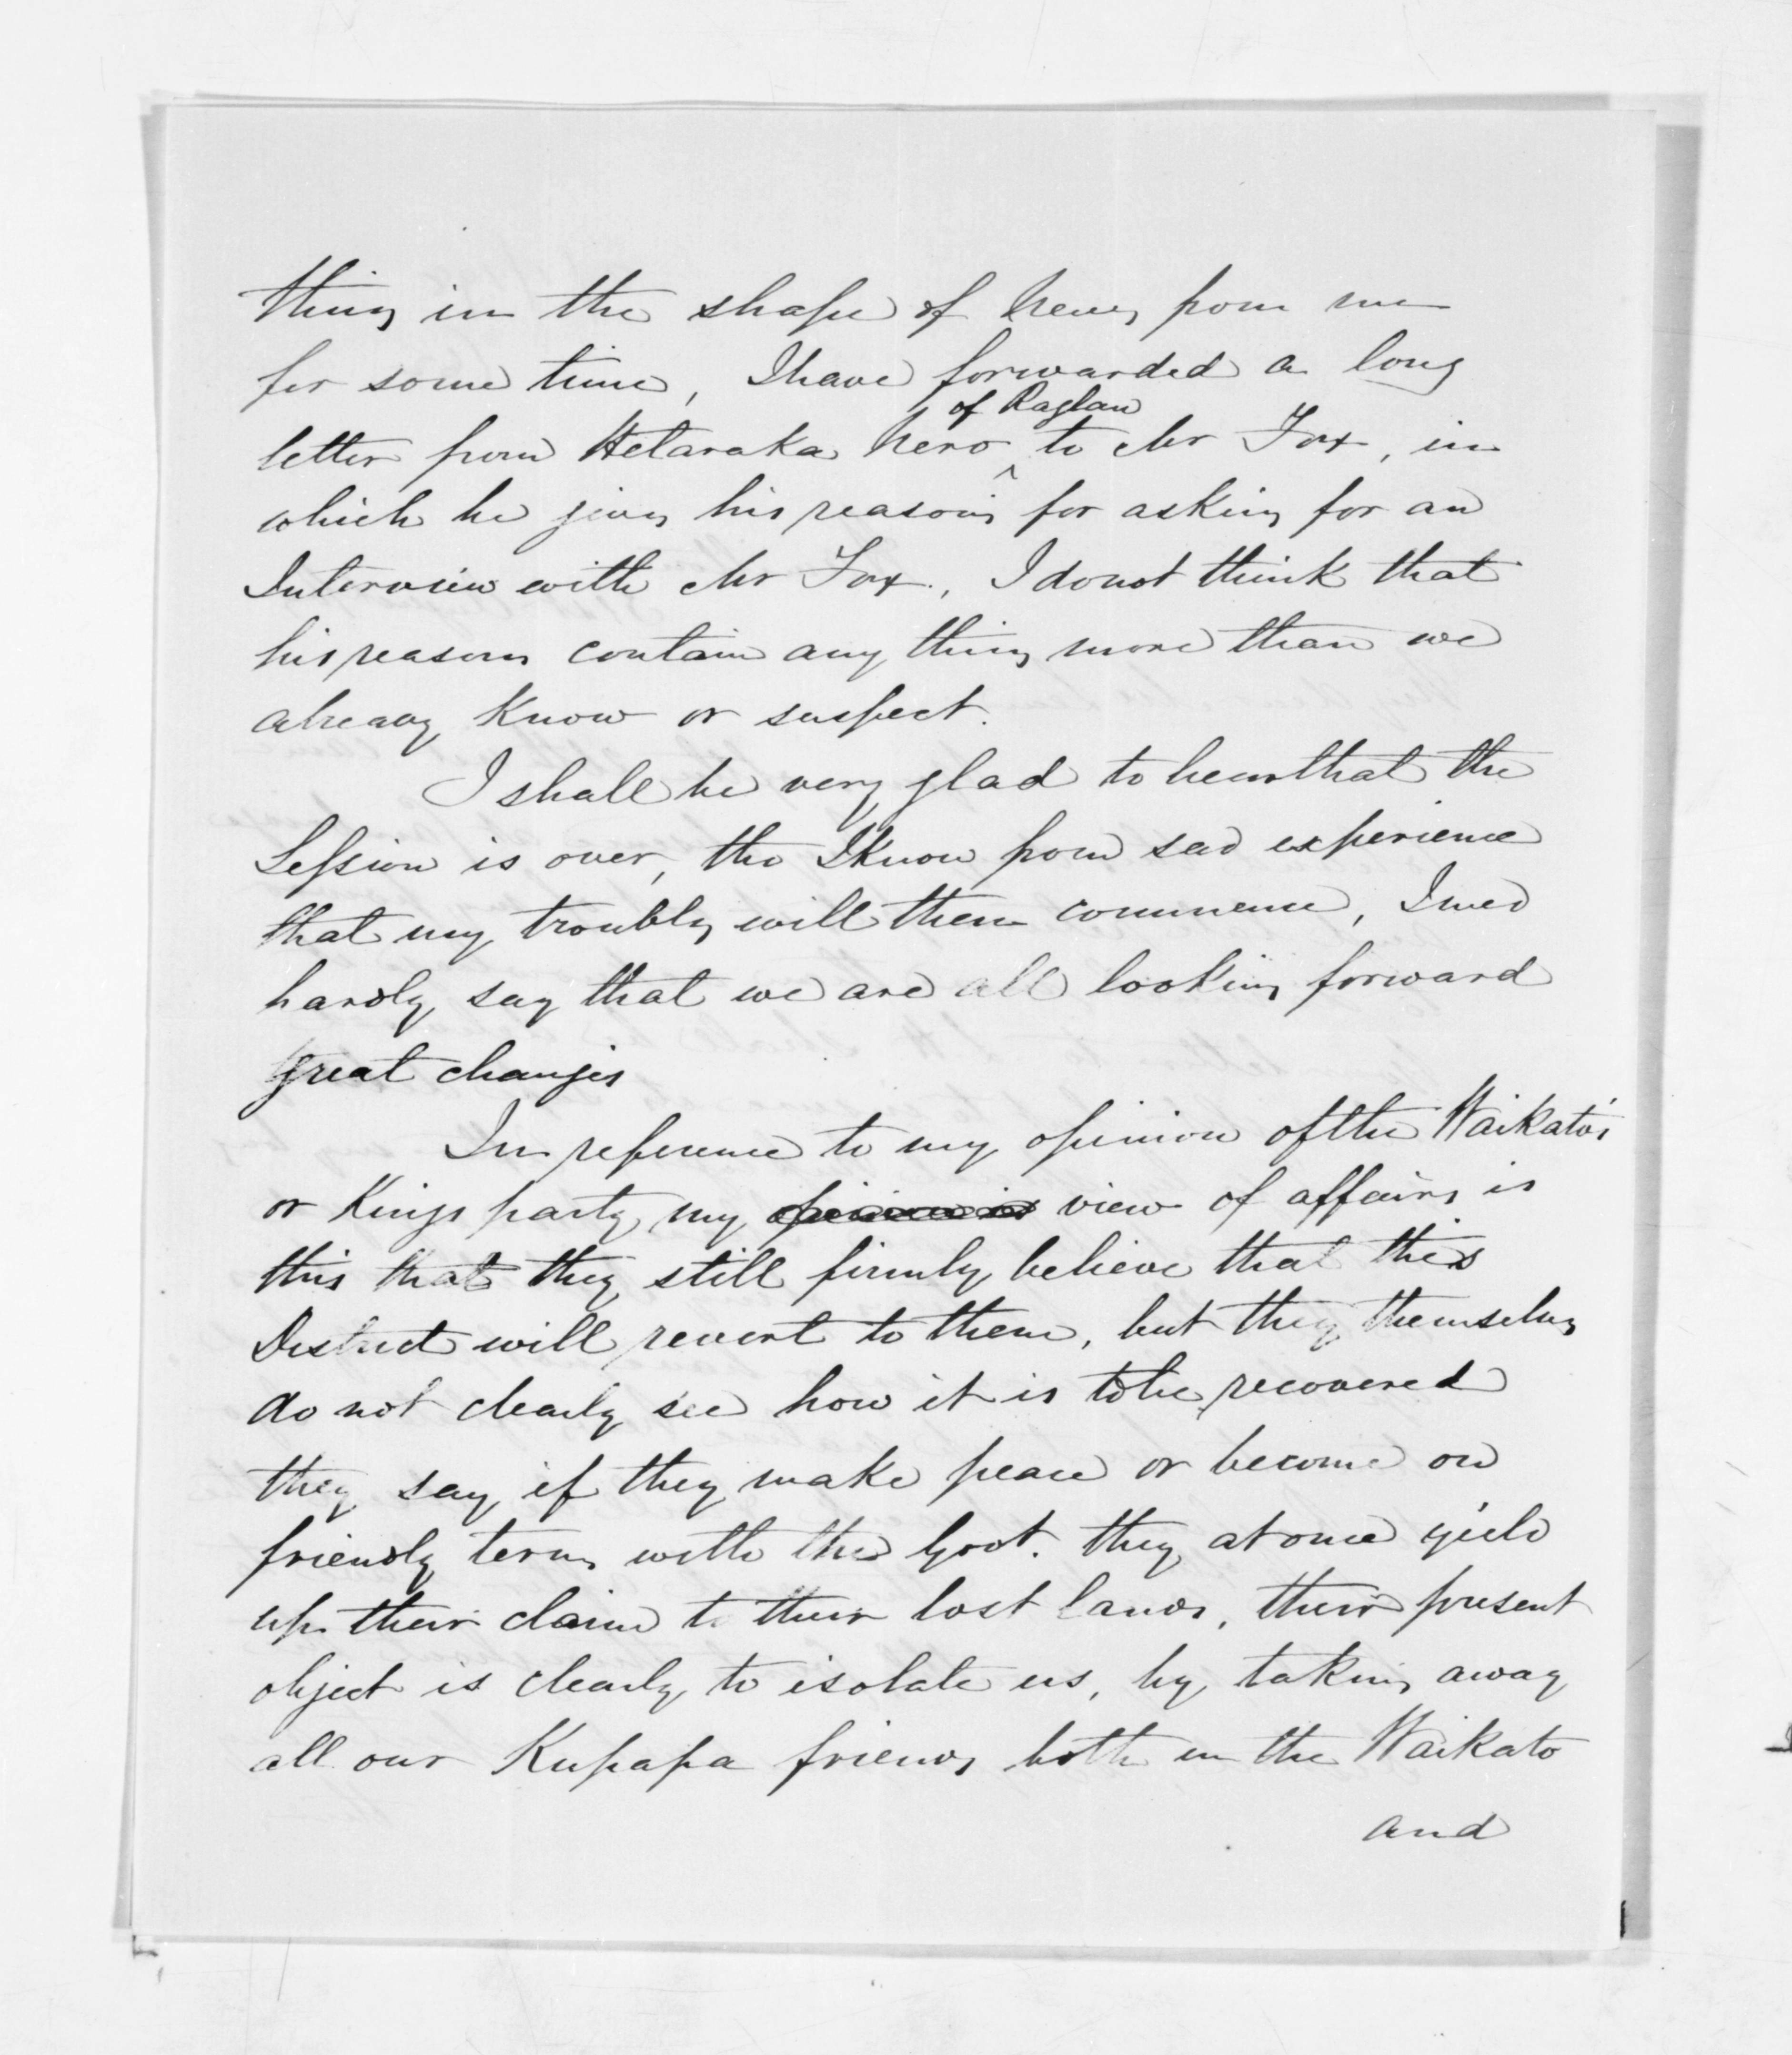 thing in the shape of News from me
for some time, I have forwarded a long
letter from Hetaraka Nero ^of Raglan to Mr Fox, in
which he gives his reasons for asking for an
Interview with Mr Fox, I do not think that
his reasons contain any thing more than we
already know or suspect.
I shall be very glad to hear that the
Session is over, tho I know from sad experience
that my troubles will then commence, I need
hardly say that we are all looking forward
great changes
In reference to my opinion of the Waikato's
or Kings party, my ~~opinion is~~ view of affairs is
this that they still firmly believe that this
District will revert to them, but they themselves
do not clearly see how it is to be recovered
they say if they make peace or become on
friendly terms with the Govt. they at once yield
up their claim to their lost lands, their present
object is clearly to isolate us, by taking away
all our Kupapa friends both in the Waikato
and